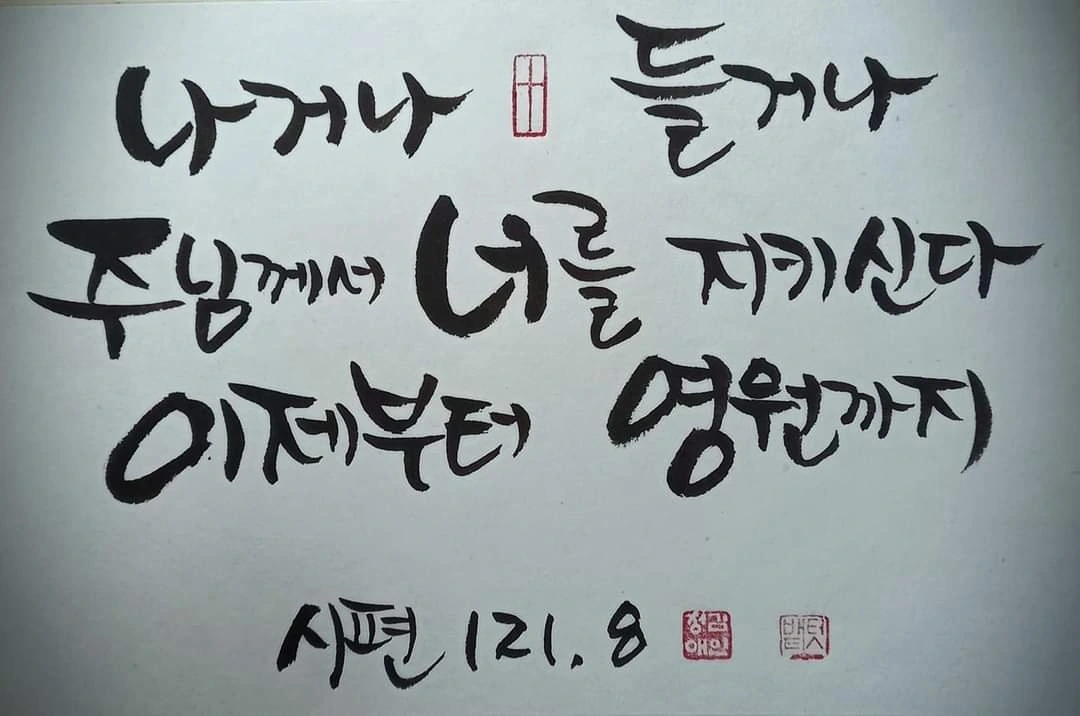 나거나 들거나
주님께서 너를 지키신다
이제부터 영원까지
시편 121.8